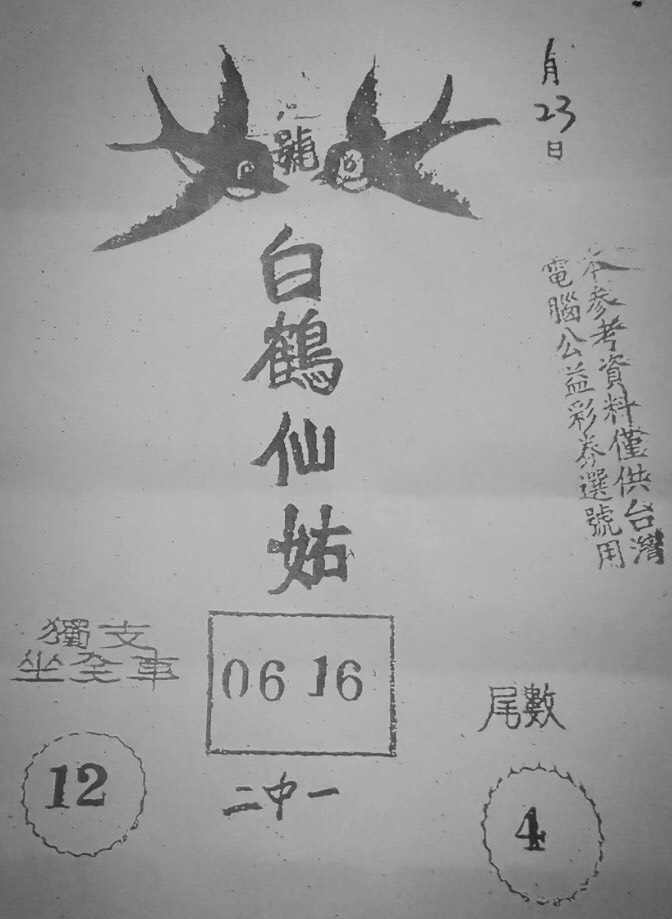 月
23
日
號
白鶴仙姑
本参考資料僅供台灣
電腦公益彩券選號用
獨支
坐全車
06 16
二中一
12
尾數
4